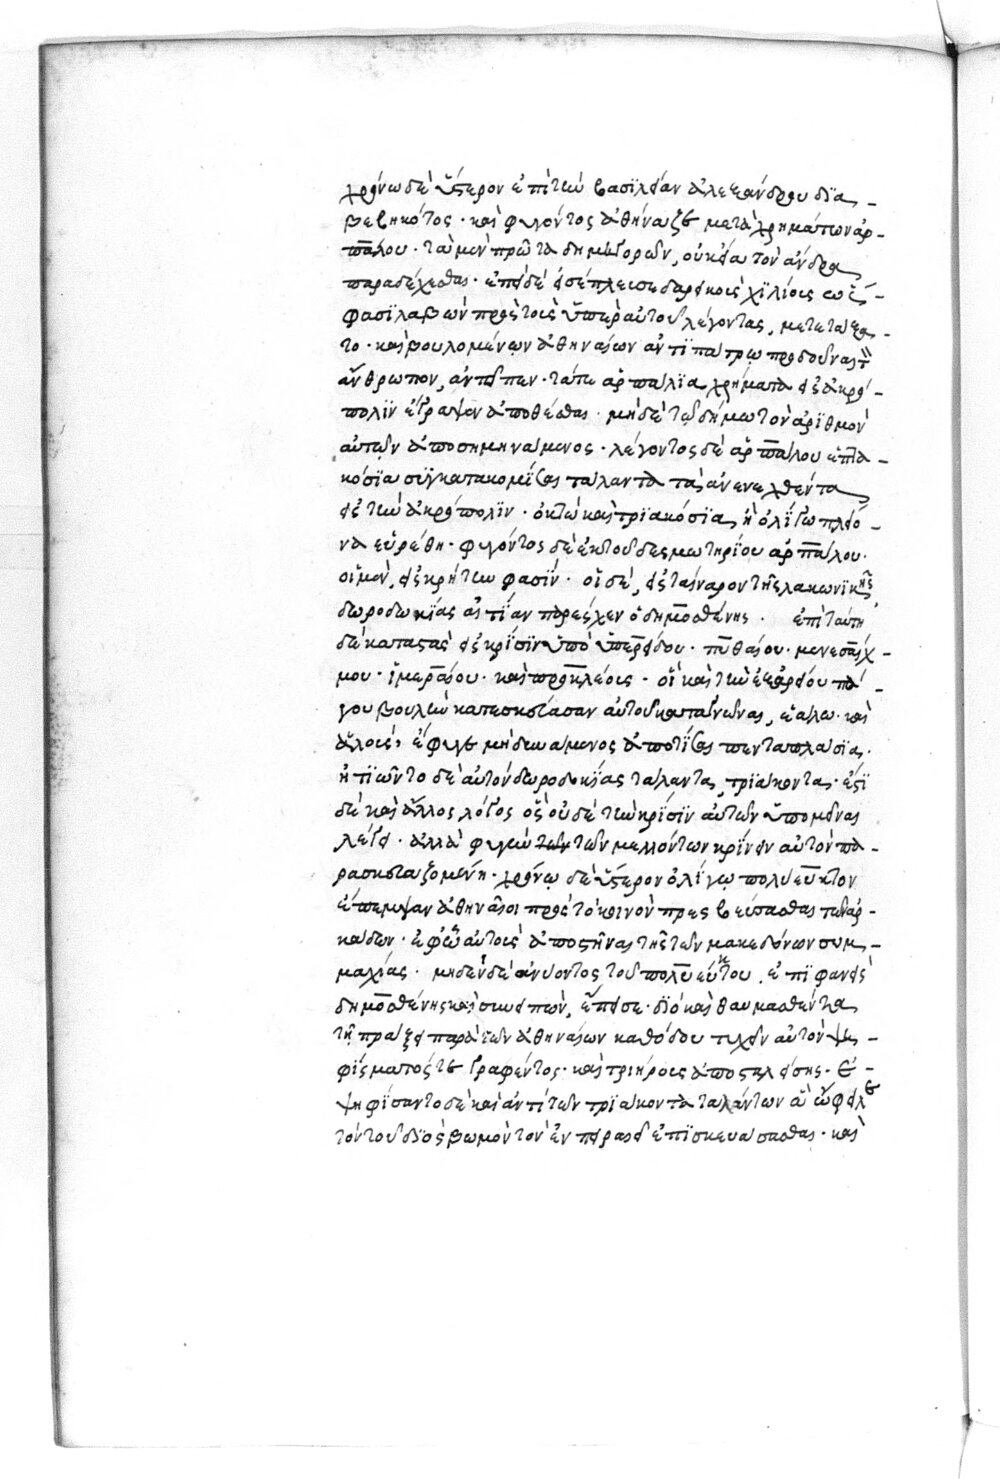 χρόνω δὲ ὕστερον ἐπὶ τὴν βασϊλείαν ἀλεξάνδρου δϊα_
βεβηκότος· καὶ φυγόντος ἀθήναζε μετὰ χρημάτων ἁρ-
πάλου· τὰ μὲν πρῶτα δημηγορῶν, οὐκ εἴα τὸν ἄνδρα
παραδέχεσθαι· ἐπεὶ δὲ εἰσέπλευσε δαρεικοὺς χϊλίους
φασὶ λαβὼν πρὸς τοὺς ὑπὲρ αὐτοῦ λέγοντας, μετετάξα-
το· καὶ βουλομένων ἀθηναίων ἀντϊπάτρω προδοῦναι τ
ἄνθρωπον, ἀντεῖπεν· τά τε ἁρπάλϊα χρήματα εἰς ἀκρό-
πολϊν ἔγραψεν ἀποθέσθαι· μηδὲ τῶ δήμω τὸν ἀρϊθμὸν
αὐτῶν ἀποσημηνάμενος· λέγοντος δὲ ἁρπάλου ἑπτα-
κόσϊα συγκατακομίσαι τάλαντα τὰ ἀνενεχθέντα
εἰς τὴν ἀκρόπολϊν· ὀκτὼ καὶ τρϊακόσϊα, ἢ ὀλίγω πλεί-
να εὑρέθη· φυγόντος δὲ ἐκ τοῦ δεσμωτηρίου ἁρπάλου·
οἱ μὲν, εἰς κρήτην φασΐν· οἱ δὲ, εἰς ταίναρον τῆς λακωνϊκῆς,
δωροδοκίας αἰτίαν παρέσχεν ὁ δημοσθένης· ἐπὶ ταύτη
δὲ καταστὰς εἰς κρίσϊν ὑπὸ ὑπερείδου· πυθαίου· μενεσαίχ-
μου· ἱμεραίου· καὶ προκλέους· οἳ καὶ τὴν ἐξ ἀρείου πά-
γου βουλὴν κατεσκεύασαν αὐτοῦ καταγνῶναι, ἑάλω· καὶ
ἁλοὺς, ἔφυγε μὴ δυνάμενος ἀποτίσαι πενταπλάσϊα·
ἠτϊῶντο δὲ αὐτὸν δωροδοκίας τάλαντα τρϊάκοντα· ἔστϊ
δὲ καὶ ἄλλος λόγος ὃς οὐδὲ τὴν κρίσϊν αὐτὸν ὑπομεῖναι
λέγει· ἀλλὰ φυγεῖν τῶν μελλόντων κρίνειν αὐτὸν πα-
ρασκευαζομένη· χρόνω δὲ ὕστερον ὀλίγω πολύευκτον
ἔπεμψαν ἀθηναῖοι πρὸς τὸ κοινὸν πρεσβεύσασθαι τῶν ἀρ-
κάδων· ἐφ' ὧ αὐτοὺς ἀποστῆναι τῆς τῶν μακεδόνων συμ-
μαχίας· μηδὲν δὲ ἀνύοντος τοῦ πολυεύκτου, ἐπϊφανεὶς
δημοσθένης καὶ συνειπὼν, ἔπεισε· διὸ καὶ θαυμασθέντα
τῆ πράξει παρὰ τῶν ἀθηναίων καθόδου τυχεῖν αὐτὸν ψη-
φίσματός τε γραφέντος· καὶ τριήρους ἀποσταλείσης· ἐ-
ψηφίσαντο δὲ καὶ ἀντὶ τῶν τρϊάκοντα ταλάντων ἃ ὤφειλε
τὸν τοῦ δϊὸς βωμὸν τὸν ἐν πειραιεῖ ἐπϊσκευάσασθαι· καὶ